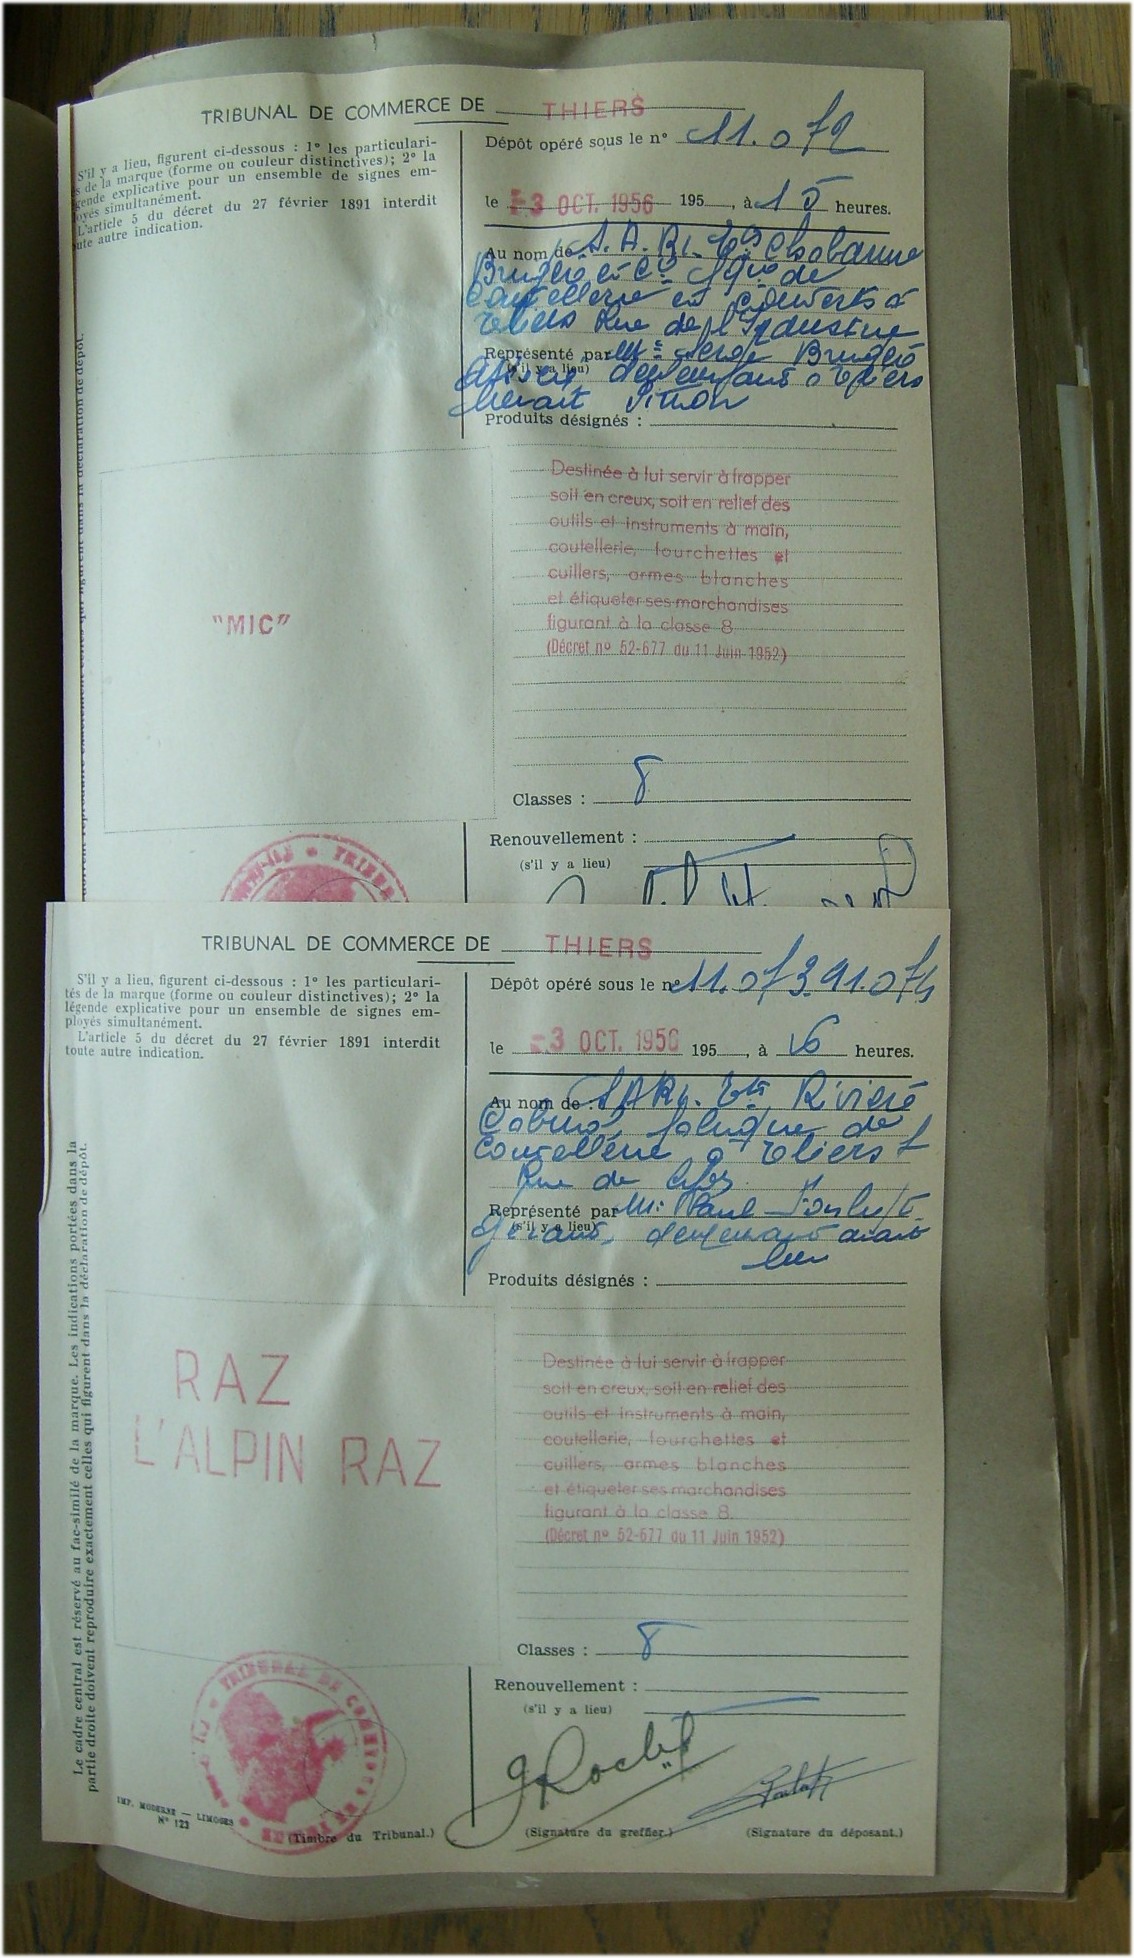 TRIBUNAL DE COMMERCE DE THIERS
S'il y a lieu, figurent ci-dessous : 1° les particulari-
s de la marque (forme ou couleur distinctives); 2° la
gende explicative pour un ensemble de signes em-
oyés simultanément.
L'article 5 du décret du 27 février 1891 interdit
ute autre indication.
Dépôt opéré sous le n° 11.072
le -3 OCT. 1956 195 , à 15 heures.
Au nom de S.A.R.L. Ets Chabanne
Brugère et Cie fque de
Coutellerie et couverts à
Thiers Rue de l'Industrie
Représenté par Mr Serge Brugère
(s'il y a lieu)
Associé demeurant à Thiers
Produits désignés :
Destinée à lui servir à frapper
soit en creux, soit en relief des
outils et instruments à main,
coutellerie, fourchettes et
cuillers, armes blanches
et étiqueter ses marchandises
figurant à la classe 8
(Décret n° 52-677 du 11 Juin 1952)
"MIC"
Classes : 8
Renouvellement :
(s'il y a lieu)
TRIBUNAL DE COMMERCE DE THIERS
S'il y a lieu, figurent ci-dessous : 1° les particulari-
tés de la marque (forme ou couleur distinctives); 2° la
légende explicative pour un ensemble de signes em-
ployés simultanément.
L'article 5 du décret du 27 février 1891 interdit
toute autre indication.
Dépôt opéré sous le n° 11.073.11.074
le -3 OCT. 1956 195 , à 16 heures.
Au nom de : SARL. Ets Rivière
fabrique de
Coutellerie à Thiers
Rue de
Représenté par Mr Paul
(s'il y a lieu)
Gérant, demeurant audit
lieu
Produits désignés :
Destinée à lui servir à frapper
soit en creux, soit en relief des
outils et instruments à main,
coutellerie, fourchettes et
cuillers, armes blanches
et étiqueter ses marchandises
figurant à la classe 8.
(Décret n° 52-677 du 11 Juin 1952)
RAZ
L'ALPIN RAZ
Le cadre central est réservé au fac-similé de la marque. Les indications portées dans la
partie droite doivent reproduire exactement celles qui figurent dans la déclaration de dépôt.
Classes : 8
Renouvellement :
(s'il y a lieu)
TRIBUNAL DE COMMERCE DE THIERS
IMP. MODERNE — LIMOGES
N° 123
(Timbre du Tribunal.)
(Signature du greffier.)
(Signature du déposant.)